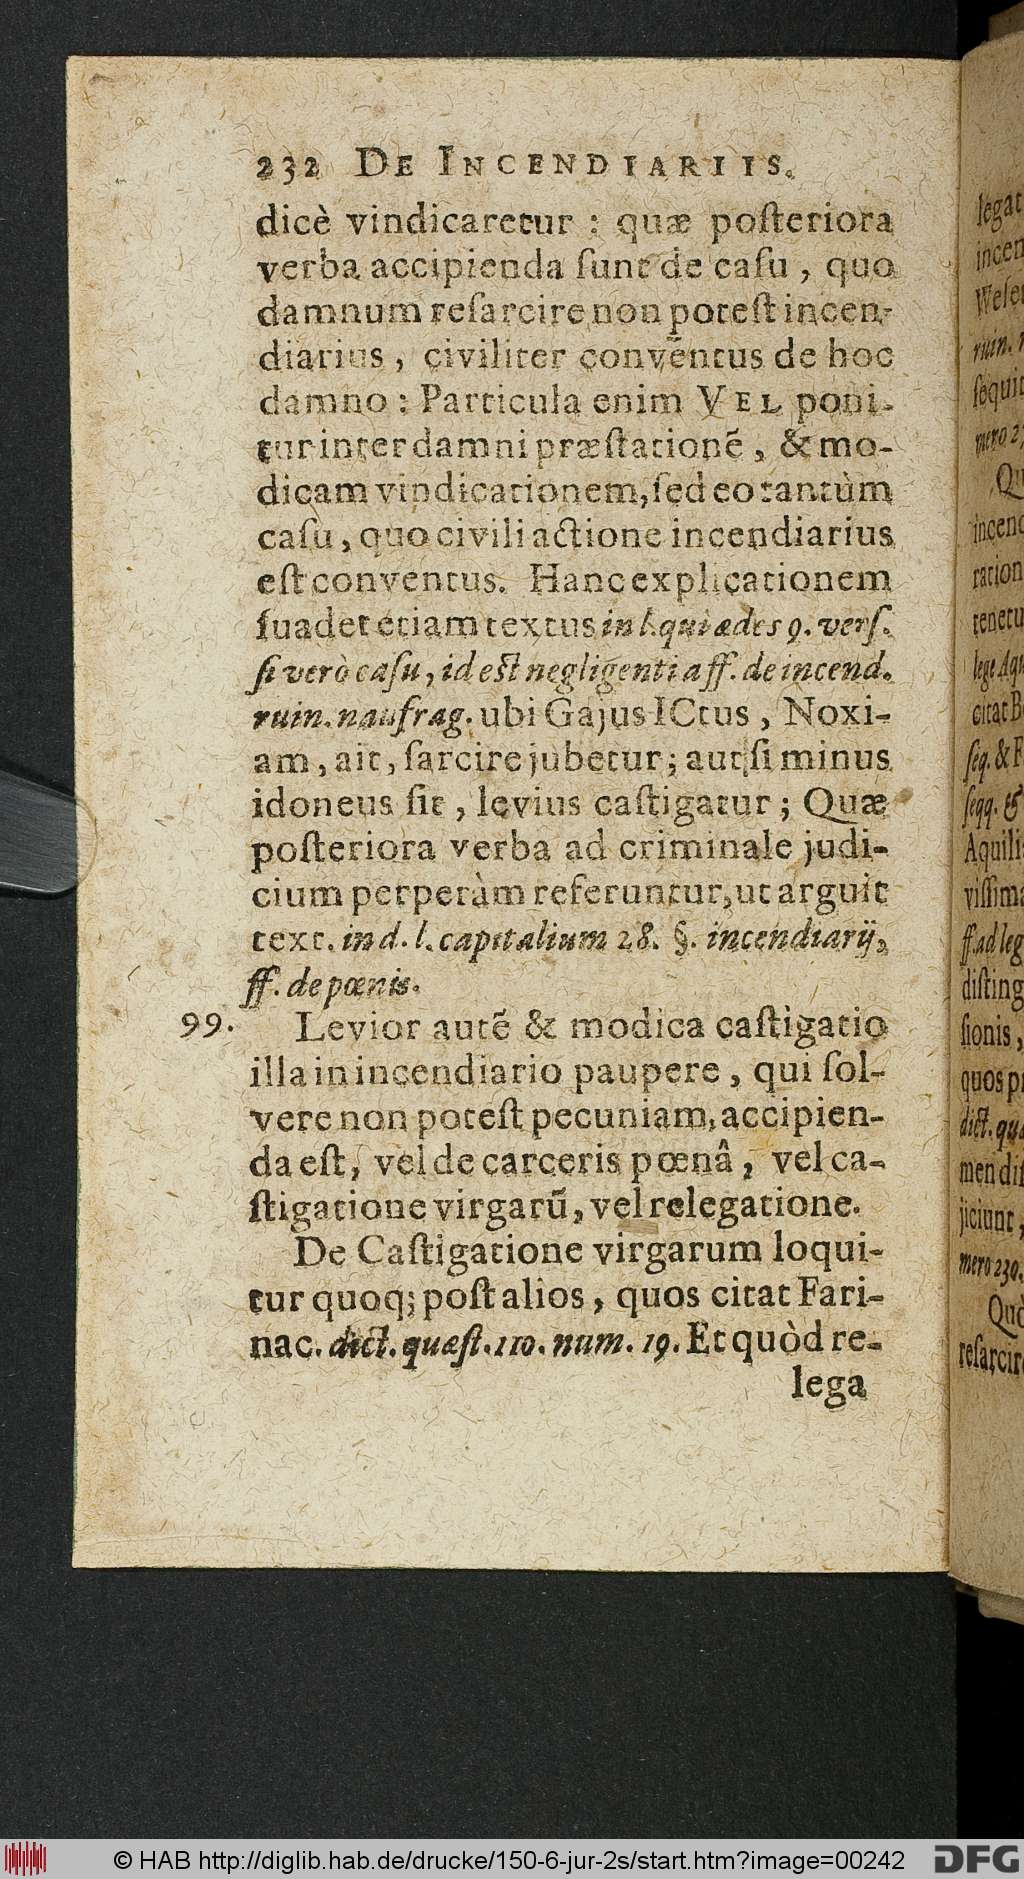 232 DE INCENDIARIIS.
dicè vindicaretur : quæ poſteriora
verba accipienda ſunt de caſu , quo
damnum reſarcire non poteſt incen-
diarius , civiliter convẽntus de hoc
damno : Particula enim VEL poni-
tur inter damni præſtationẽ , & mo-
dicam vindicationem, ſed eo tantùm
caſu , quo civili actione incendiarius
eſt conventus. Hanc explicationem
ſuadet etiam textus in l. qui ædes 9. verſ.
ſi verò caſu, id eſt negligentia ff. de incend.
ruin. naufrag. ubi Gajus ICtus , Noxi-
am , ait , ſarcire jubetur ; aut ſi minus
idoneus ſit , levius caſtigatur ; Quæ
poſteriora verba ad criminale judi-
cium perperàm referuntur, ut arguit
text. in d. l. capitalium 28. §. incendiarij,
ff. de pœnis.
99. Levior autẽ & modica caſtigatio
illa in incendiario paupere , qui ſol-
vere non poteſt pecuniam, accipien-
da eſt, vel de carceris pœnâ , vel ca-
ſtigatione virgarũ, vel relegatione.
De Caſtigatione virgarum loqui-
tur quoq; poſt alios , quos citat Fari-
nac. dict. quæſt. 110. num. 19. Et quòd re-
lega
legat
incen
Weſe
ruin.
ſequit
mero 2
Qu
incend
ration
tenetu
lege Aqu
citat B
ſeq. & F
ſeqq. &
Aquili
viſſima
ff. ad leg
diſting
ſionis,
quos p
dict. quæ
men diſ
jiciunt,
mero 230.
Quò
reſarcire
© HAB http://diglib.hab.de/drucke/150-6-jur-2s/start.htm?image=00242
DFG